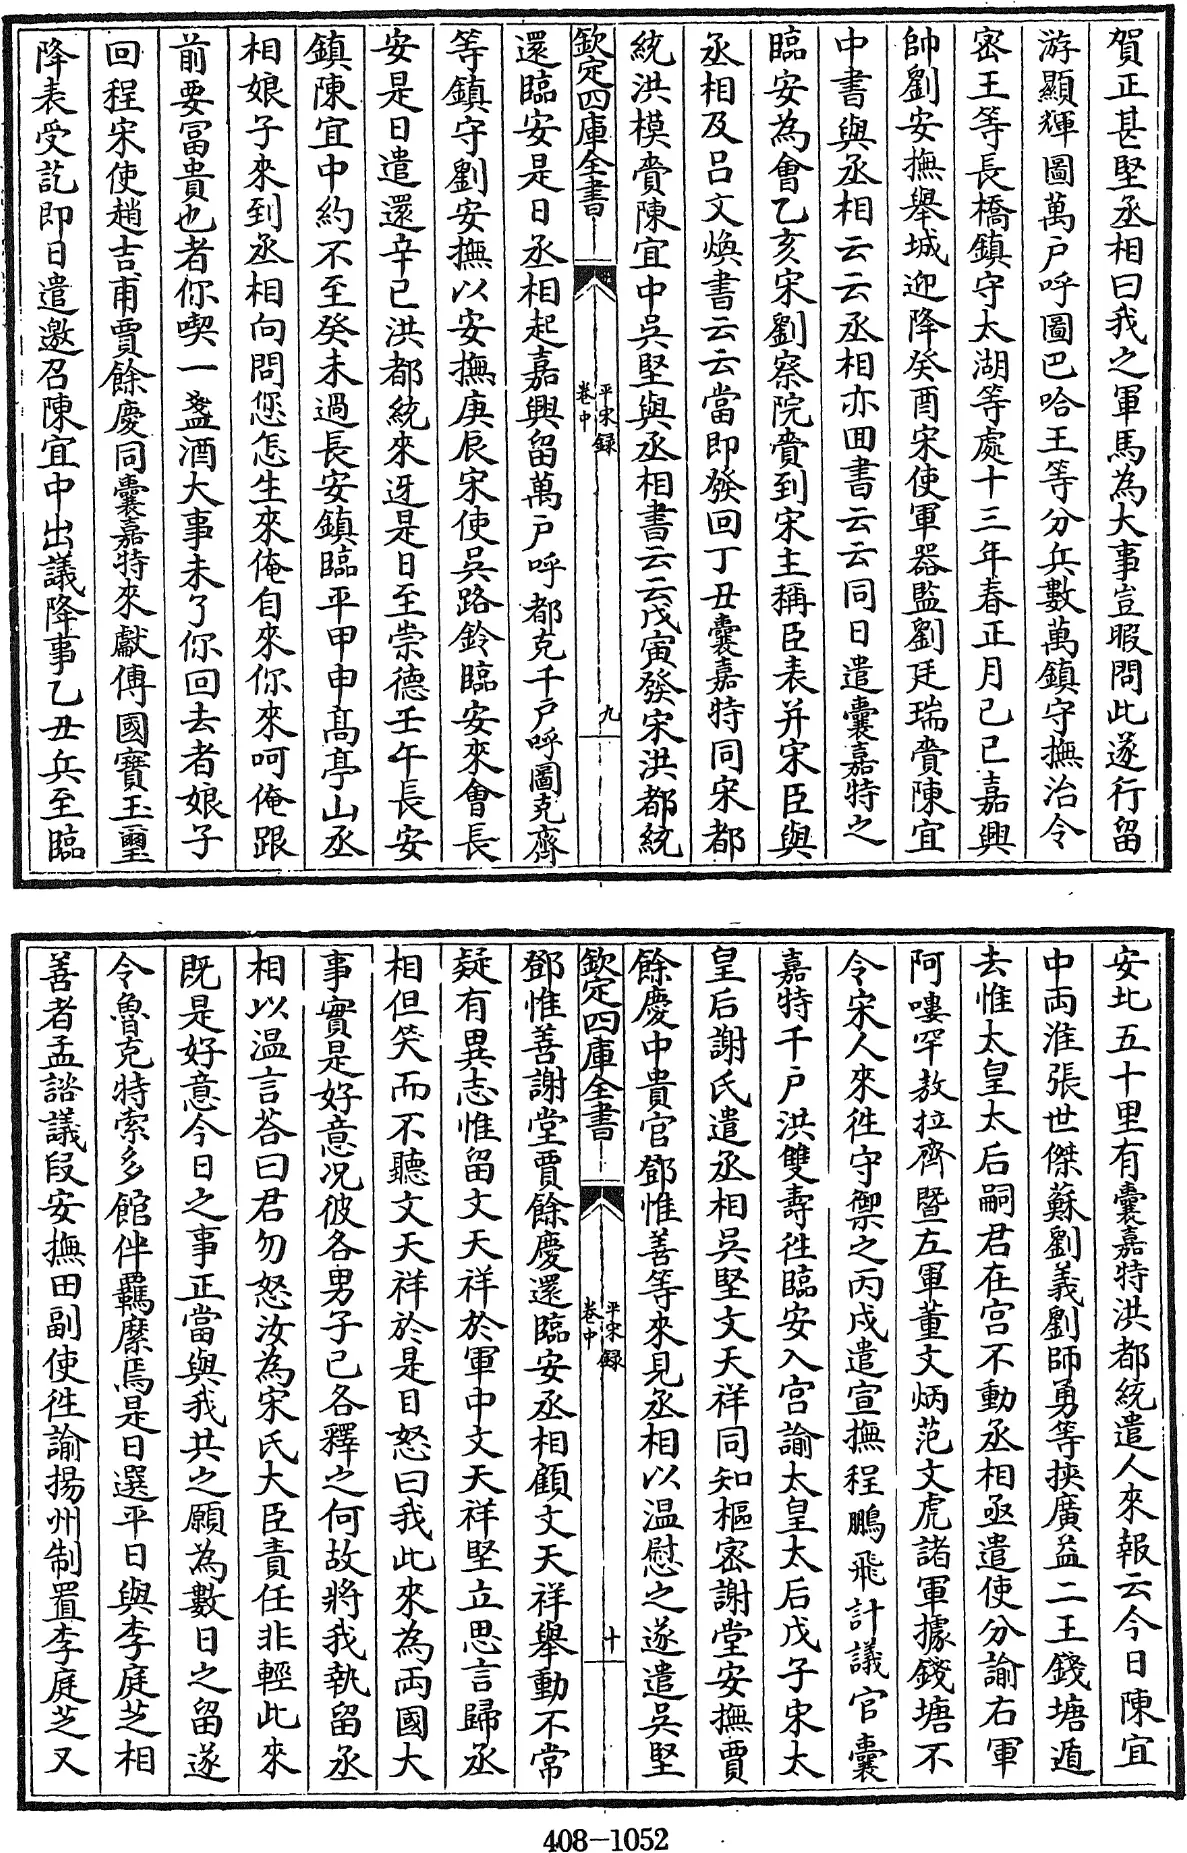 賀正甚堅丞相曰我之軍馬為大事豈暇問此遂行留
游顯輝圖萬戶呼圖巴哈王等分兵數萬鎮守撫治令
宻王等長橋鎮守太湖等處十三年春正月己巳嘉興
帥劉安撫舉城迎降癸酉宋使軍器監劉廷瑞賫陳宜
中書與丞相云云丞相亦囬書云云同日遣囊嘉特之
臨安為會乙亥宋劉察院賫到宋主稱臣表并宋臣與
丞相及呂文煥書云云當即發回丁丑囊嘉特同宋都
統洪模賫陳宜中吳堅與丞相書云云戊寅發宋洪都統
欽定四庫全書
平宋録
卷中
九
還臨安是日丞相起嘉興留萬戶呼都克千戶呼圖克齊
等鎮守劉安撫以安撫庚辰宋使吳路鈐臨安來會長
安是日遣還辛巳洪都統來迓是日至崇德壬午長安
鎮陳宜中約不至癸未過長安鎮臨平甲申髙亭山丞
相娘子來到丞相向問您怎生來俺自來你來呵俺跟
前要富貴也者你喫一盞酒大事未了你回去者娘子
回程宋使趙吉甫賈餘慶同囊嘉特來獻傳國寳玉璽
降表受訖即日遣邀召陳宜中出議降事乙丑兵至臨
安北五十里有囊嘉特洪都統遣人來報云今日陳宜
中両淮張世傑蘇劉義劉師勇等挾廣益二王錢塘遁
去惟太皇太后嗣君在宫不動丞相亟遣使分諭右軍
阿嘍罕敖拉齊暨左軍董文炳范文虎諸軍據錢塘不
令宋人來徃守禦之丙戌遣宣撫程鵬飛計議官囊
嘉特千戶洪雙壽徃臨安入宫諭太皇太后戊子宋太
皇后謝氏遣丞相吳堅文天祥同知樞宻謝堂安撫賈
餘慶中貴官鄧惟善等來見丞相以温慰之遂遣吳堅
欽定四庫全書
平宋録
卷中
十
鄧惟善謝堂賈餘慶還臨安丞相顧文天祥舉動不常
疑有異志惟留文天祥於軍中文天祥堅立思言歸丞
相但笑而不聽文天祥於是目怒曰我此來為両國大
事實是好意况彼各男子已各釋之何故將我執留丞
相以温言荅曰君勿怒汝為宋氏大臣責任非輕此來
既是好意今日之事正當與我共之願為數日之留遂
令魯克特索多館伴羈縻焉是日選平日與李庭芝相
善者孟諮議段安撫田副使徃諭揚州制置李庭芝又
408-1052